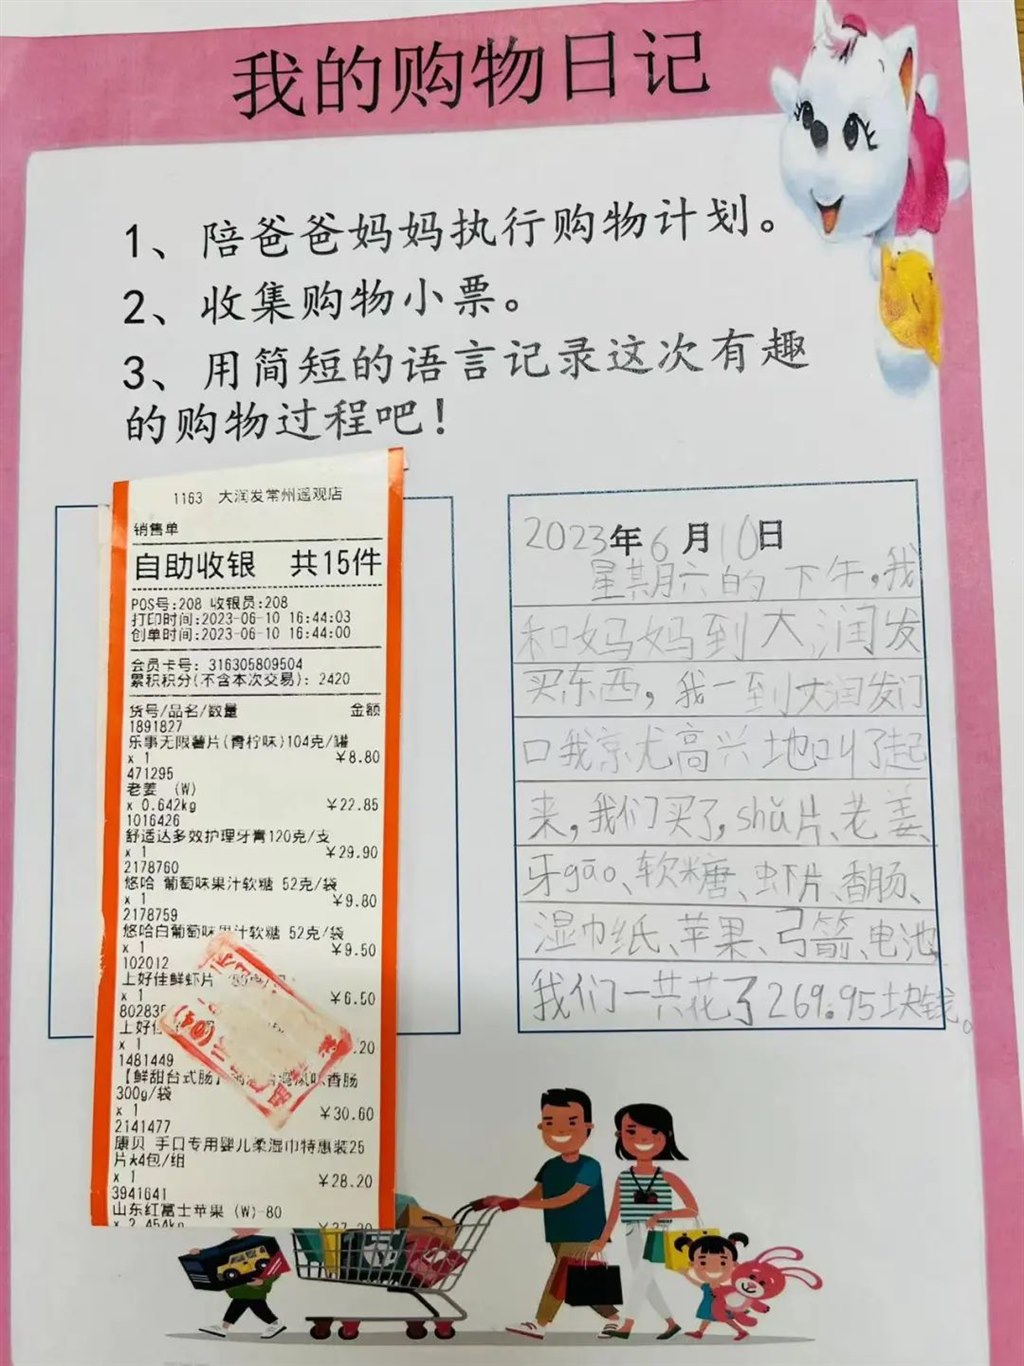 我的购物日记
1、陪爸爸妈妈执行购物计划。
2、收集购物小票。
3、用简短的语言记录这次有趣
的购物过程吧！
1163 大润发常州遥观店
销售单
自助收银 共15件
POS号:208 收银员:208
打印时间:2023-06-10 16:44:03
创单时间:2023-06-10 16:44:00
会员卡号: 316305809504
累积积分(不含本次交易): 2420
货号/品名/数量 金额
1891827
乐事无限薯片(青柠味)104克/罐
x 1 ￥8.80
471295
老姜 (W)
x 0.642kg ￥22.85
1016426
舒适达多效护理牙膏120克/支
x 1 ￥29.90
2178760
悠哈 葡萄味果汁软糖 52克/袋
x 1 ￥9.80
2178759
悠哈白葡萄味果汁软糖 52克/袋
x 1 ￥9.50
102012
上好佳鲜虾片
x 1 ￥6.50
80283
上好
x 1 .20
1481449
【鲜甜台式肠】 风味香肠
300g/袋
x 1 ￥30.60
2141477
康贝 手口专用婴儿柔湿巾特惠装25
片*4包/组
x 1 ￥28.20
3941641
山东红富士苹果 (W)-80
x 2.454kg
2023年6月10日
星期六的下午，我
和妈妈到大润发
买东西，我一到大润发门
口我就尤高兴地叫了起
来，我们买了，shǔ片、老姜、
牙gāo、软糖、虾片、香肠、
湿巾纸、苹果、弓箭、电池，
我们一共花了269.95块钱。